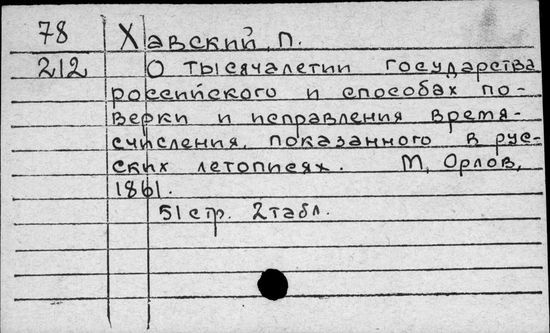 78 Хавский, П.
212 О тысячалетии государства
российского и способах по-
верки и исправления время-
счисления, показанного в рус-
ских летописях. М, Орлов,
1861.
51 стр. 2 табл.